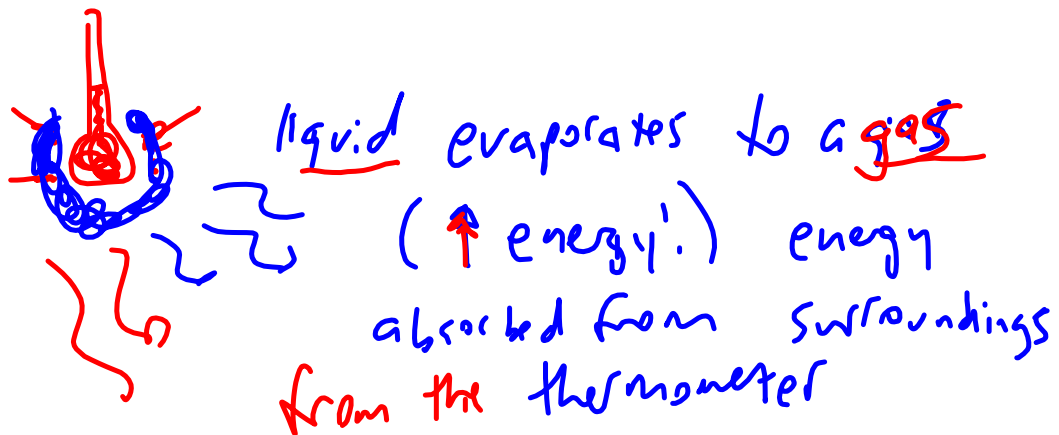 liquid evaporates to a gas
(↑ energy!) energy
absorbed from surroundings
from the thermometer